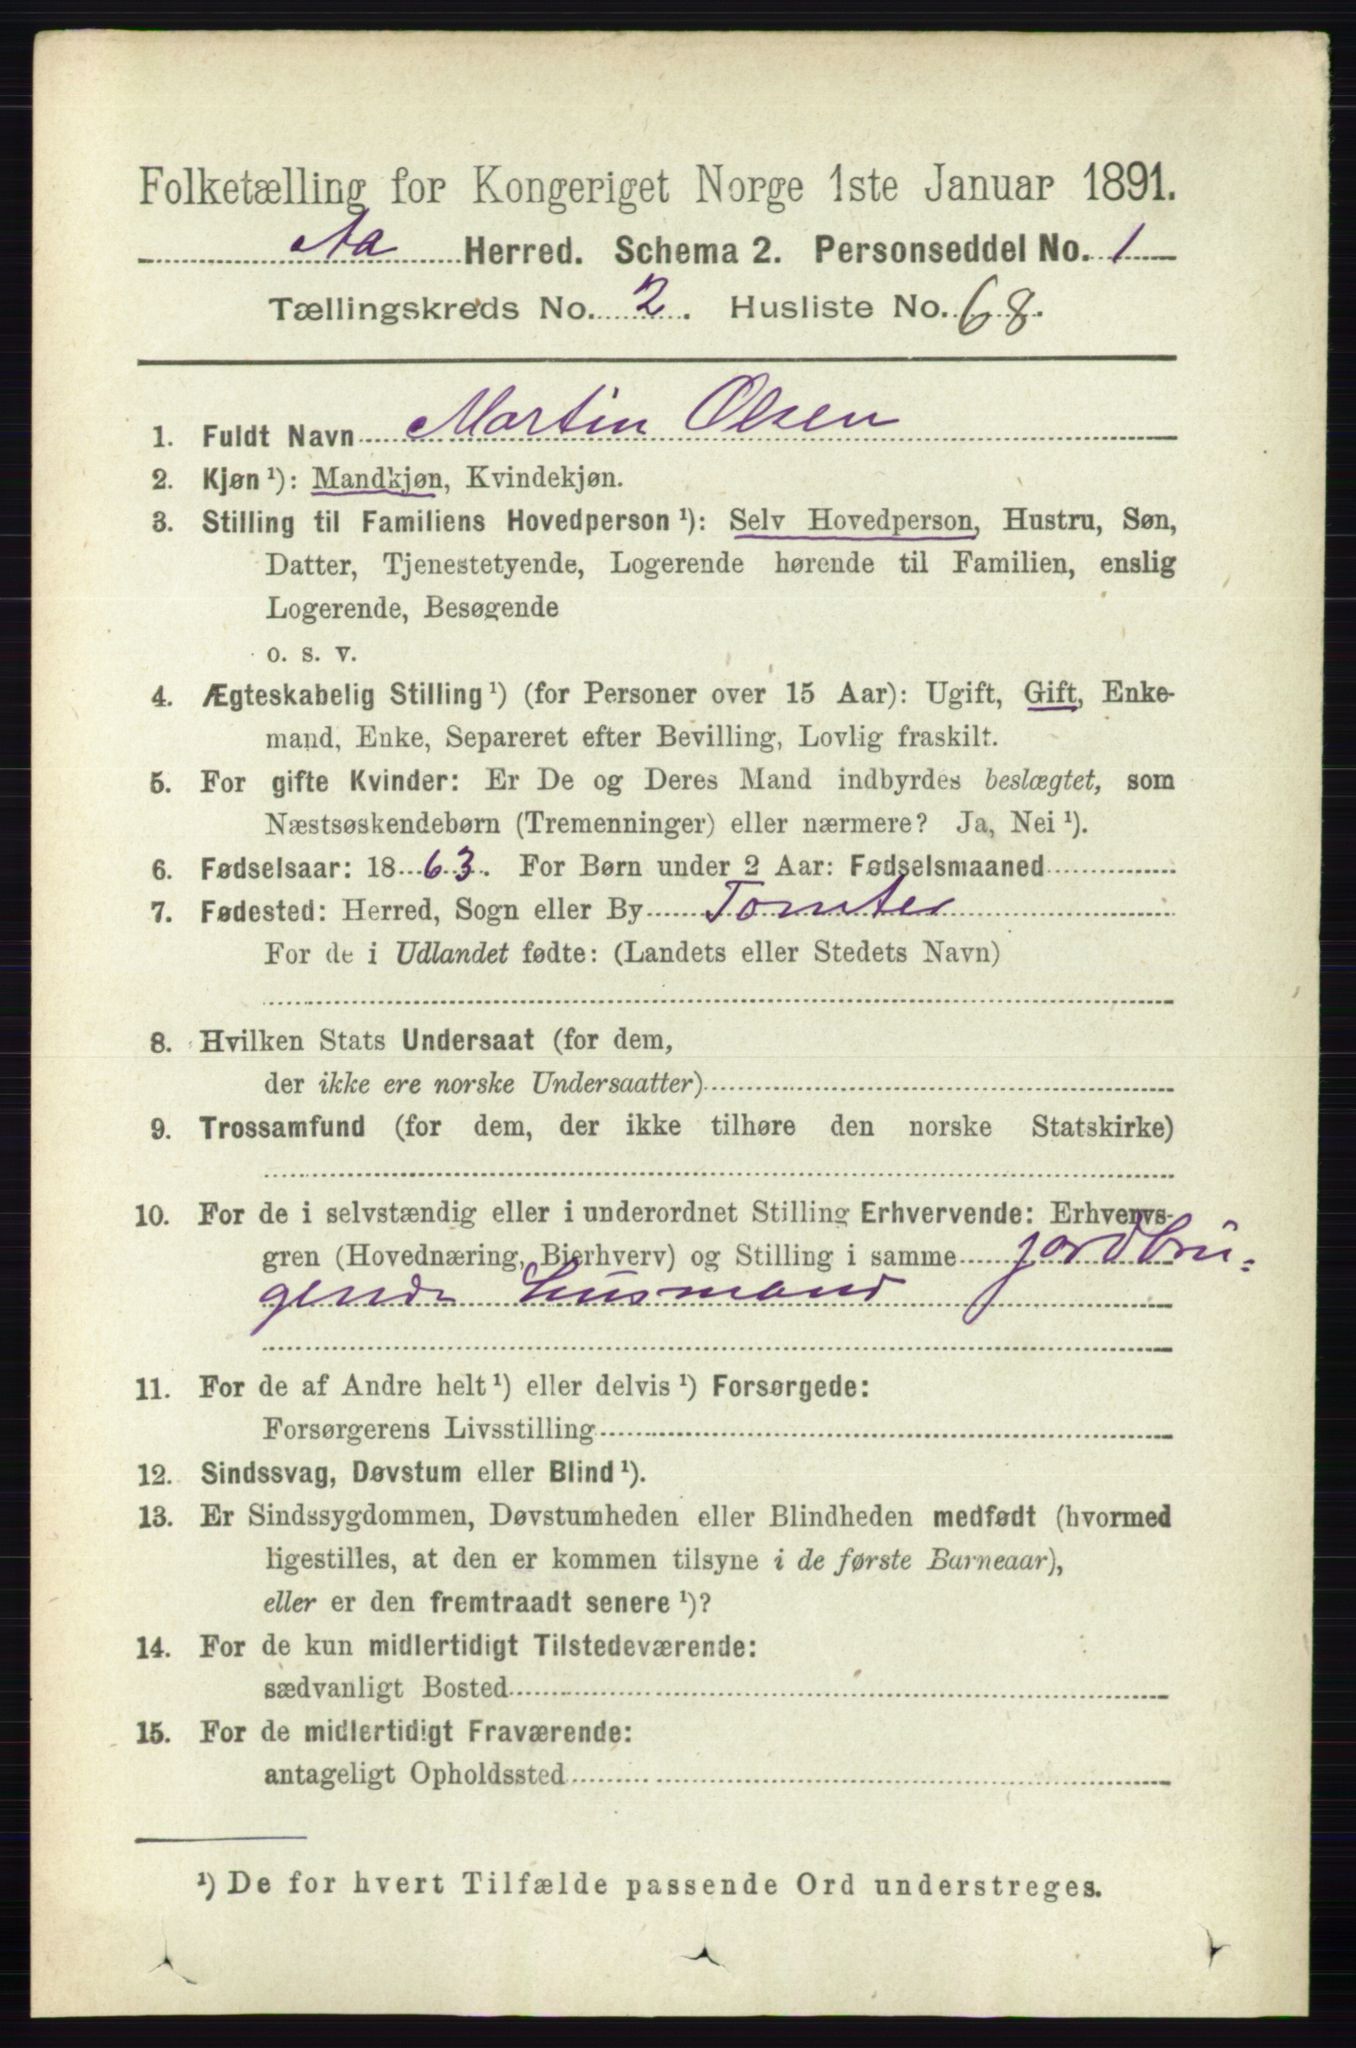 Folketælling for Kongeriget Norge 1ste Januar 1891.
Aa Herred. Schema 2. Personseddel No. 1
Tællingskreds No. 2. Husliste No. 68.
1. Fuldt Navn Martin Olsen
2. Kjøn¹): Mandkjøn, Kvindekjøn.
3. Stilling til Familiens Hovedperson¹): Selv Hovedperson, Hustru, Søn,
Datter, Tjenestetyende, Logerende hørende til Familien, enslig
Logerende, Besøgende
o. s. v.
4. Ægteskabelig Stilling¹) (for Personer over 15 Aar): Ugift, Gift, Enke-
mand, Enke, Separeret efter Bevilling, Lovlig fraskilt.
5. For gifte Kvinder: Er De og Deres Mand indbyrdes beslægtet, som
Næstsøskendebørn (Tremenninger) eller nærmere? Ja, Nei¹).
6. Fødselsaar: 1863. For Børn under 2 Aar: Fødselsmaaned
7. Fødested: Herred, Sogn eller By Tomter
For de i Udlandet fødte: (Landets eller Stedets Navn)
8. Hvilken Stats Undersaat (for dem,
der ikke ere norske Undersaatter)
9. Trossamfund (for dem, der ikke tilhøre den norske Statskirke)
10. For de i selvstændig eller i underordnet Stilling Erhvervende: Erhvervs-
gren (Hovednæring, Bierhverv) og Stilling i samme jordbru-
gende Husmand
11. For de af Andre helt¹) eller delvis¹) Forsørgede:
Forsørgerens Livsstilling
12. Sindssvag, Døvstum eller Blind¹).
13. Er Sindssygdommen, Døvstumheden eller Blindheden medfødt (hvormed
ligestilles, at den er kommen tilsyne i de første Barneaar),
eller er den fremtraadt senere¹)?
14. For de kun midlertidigt Tilstedeværende:
sædvanligt Bosted
15. For de midlertidigt Fraværende:
antageligt Opholdssted
¹) De for hvert Tilfælde passende Ord understreges.